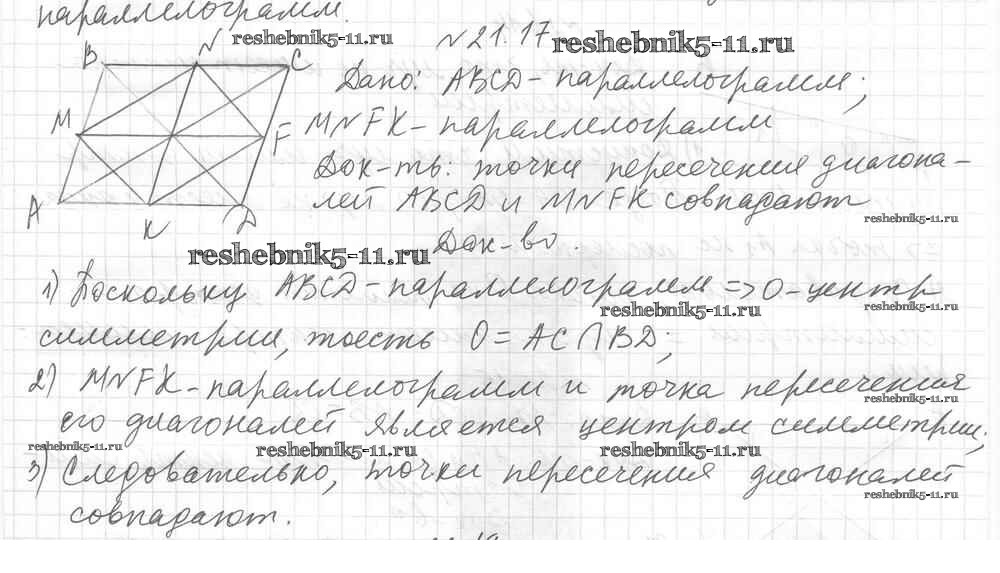 параллелограмм.
reshebnik5-11.ru
N 21.17 reshebnik5-11.ru
B N C
M F
A K D
Дано: ABCD - параллелограмм;
MNFK - параллелограмм
Док-ть: точки пересечения диагона-
лей ABCD и MNFK совпадают
reshebnik5-11.ru
Док-во
reshebnik5-11.ru
1) Поскольку ABCD - параллелограмм => O - центр
reshebnik5-11.ru reshebnik5-11.ru
симметрии, тоесть O = AC ∩ BD;
2) MNFK - параллелограмм и точка пересечения
reshebnik5-11.ru
его диагоналей является центром симметрии;
reshebnik5-11.ru reshebnik5-11.ru reshebnik5-11.ru
3) Следовательно, точки пересечения диагоналей
reshebnik5-11.ru
совпадают.